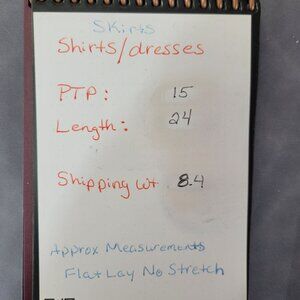 Skirts
Shirts/dresses
PTP: 15
Length: 24
Shipping wt 8.4
Approx Measurements
Flat Lay No Stretch